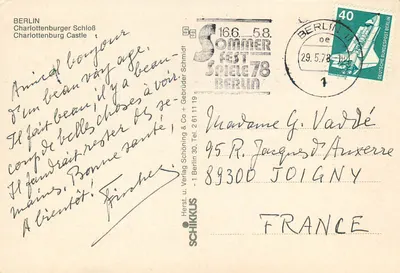 BERLIN
Charlottenburger Schloß
Charlottenburg Castle
Amical bonjour
d'un beau voyage.
Il fait beau, il y a beau-
coup de belles choses à voir.
Il faudrait rester des se-
maines. Bonne santé!
A bientôt!
SCHIKKUS
Horst. u. Verlag Schöning & Co + Gebrüder Schmidt
1 Berlin 30. Tel. 2 61 11 19
16.6. 5.8.
SOMMER
FEST
SPIELE '78
BERLIN
BERLIN
29.5.78
1
40
DEUTSCHE BUNDESPOST BERLIN
Madame G. Vaddé
95 R. Jacques d'Auxerre
89300 JOIGNY
FRANCE